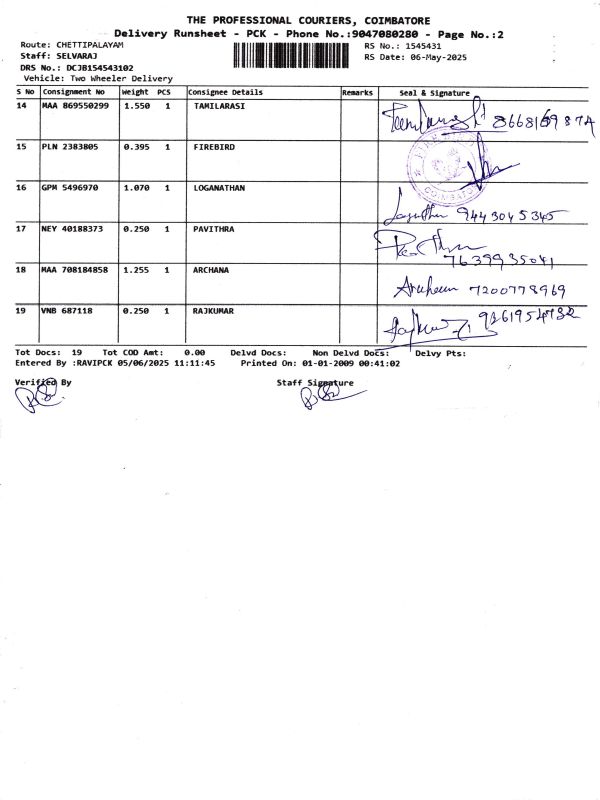 THE PROFESSIONAL COURIERS, COIMBATORE
Delivery Runsheet - PCK - Phone No.:9047080280 - Page No.:2
Route: CHETTIPALAYAM RS No.: 1545431
Staff: SELVARAJ RS Date: 06-May-2025
DRS No.: DCJB154543102
Vehicle: Two Wheeler Delivery
S No Consignment No Weight PCS Consignee Details Remarks Seal & Signature
14 MAA 869550299 1.550 1 TAMILARASI
15 PLN 2383805 0.395 1 FIREBIRD
COIMBATORE
16 GPM 5496970 1.070 1 LOGANATHAN
9443045345
17 NEY 40188373 0.250 1 PAVITHRA
7639935041
18 MAA 708184858 1.255 1 ARCHANA
7200778969
19 VNB 687118 0.250 1 RAJKUMAR
Tot Docs: 19 Tot COD Amt: 0.00 Delvd Docs: Non Delvd Docs: Delvy Pts:
Entered By :RAVIPCK 05/06/2025 11:11:45 Printed On: 01-01-2009 00:41:02
Verified By Staff Signature